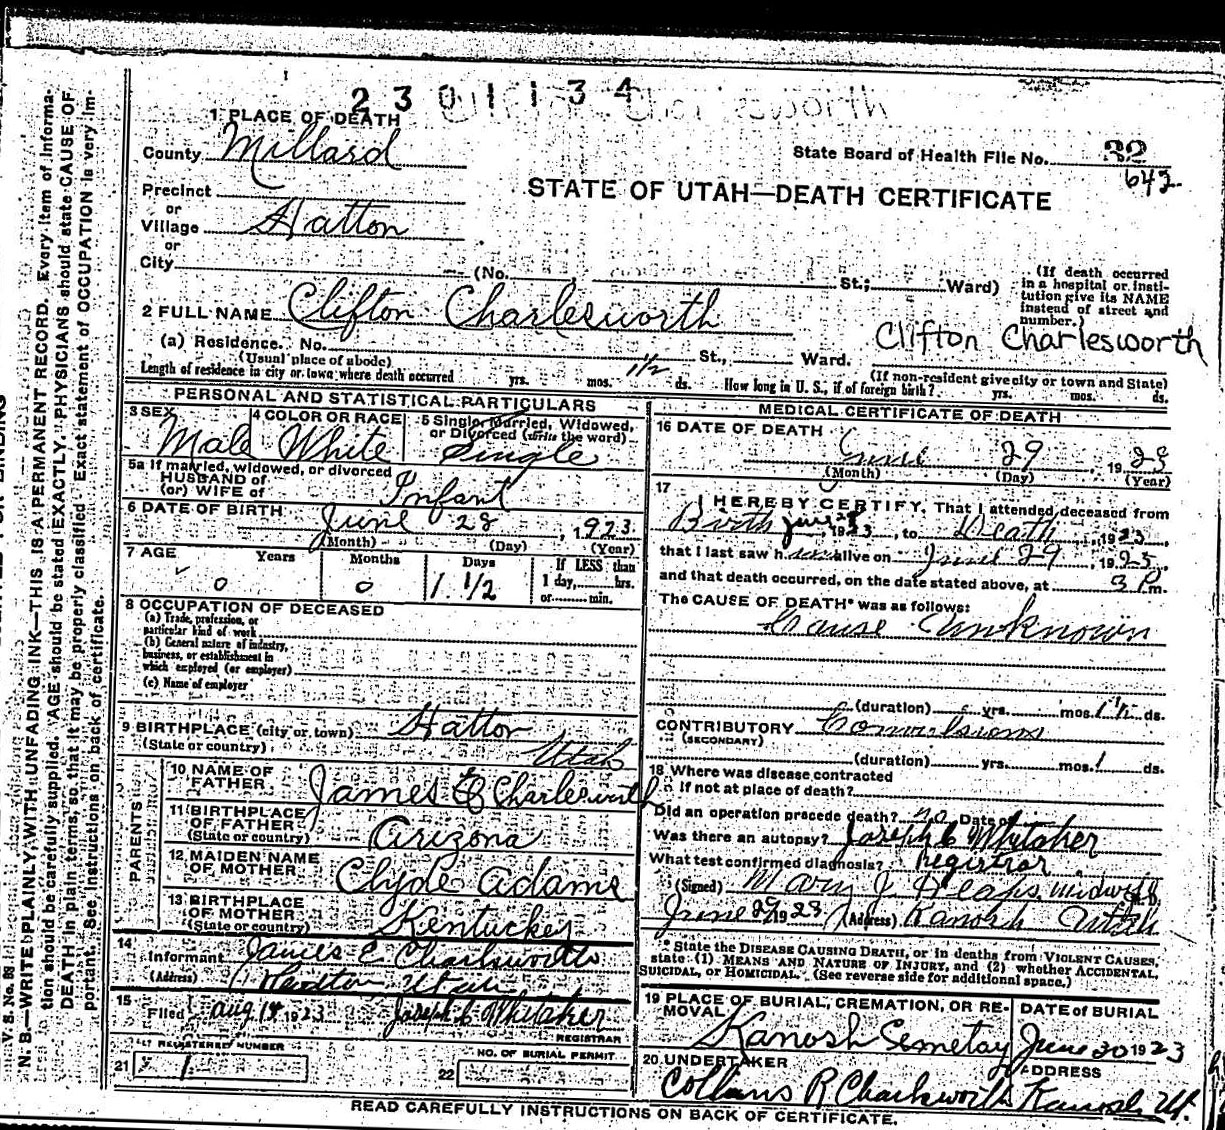 2301134
1 PLACE OF DEATH
County Millard
State Board of Health File No. 32
642
Precinct
STATE OF UTAH—DEATH CERTIFICATE
or
Village Hatton
or
City (No. St.; Ward)
(If death occurred in a hospital or institution give its NAME instead of street and number.)
2 FULL NAME Clifton Charlesworth
Clifton Charlesworth
(a) Residence. No. St., Ward.
(Usual place of abode) (If non-resident give city or town and State)
Length of residence in city or town where death occurred yrs. mos. 1/2 ds. How long in U. S., if of foreign birth? yrs. mos. ds.
PERSONAL AND STATISTICAL PARTICULARS
3 SEX 4 COLOR OR RACE 5 Single, Married, Widowed, or Divorced (write the word)
Male White Single
5a If married, widowed, or divorced
HUSBAND of
(or) WIFE of Infant
6 DATE OF BIRTH June 28, 1923
(Month) (Day) (Year)
7 AGE Years Months Days If LESS than 1 day, hrs. or min.
0 0 1 1/2
8 OCCUPATION OF DECEASED
(a) Trade, profession, or particular kind of work
(b) General nature of industry, business, or establishment in which employed (or employer)
(c) Name of employer
9 BIRTHPLACE (city or town) Hatton
(State or country) Utah
PARENTS
10 NAME OF FATHER James E Charlesworth
11 BIRTHPLACE OF FATHER (State or country) Arizona
12 MAIDEN NAME OF MOTHER Clyde Adams
13 BIRTHPLACE OF MOTHER (State or country) Kentuckey
14
Informant James E Charlsworth
(Address) Hatton Utah
15
Filed aug 14 1923 Joseph C Whitaker
REGISTRAR
21 REGISTERED NUMBER 1
22 NO. OF BURIAL PERMIT
MEDICAL CERTIFICATE OF DEATH
16 DATE OF DEATH
June 29, 1923
(Month) (Day) (Year)
17 I HEREBY CERTIFY, That I attended deceased from
Birth 1923, to Death, 1923,
that I last saw h alive on June 29, 1923,
and that death occurred, on the date stated above, at 3 Pm.
The CAUSE OF DEATH* was as follows:
Cause Unknown
(duration) yrs. mos. 1 1/2 ds.
CONTRIBUTORY Convulsions
(SECONDARY)
(duration) yrs. mos. 1 ds.
18 Where was disease contracted
if not at place of death?
Did an operation precede death? no Date of
Was there an autopsy? Joseph C Whitaker
What test confirmed diagnosis? Registrar
(Signed) Mary J. Heaps, midwife
June 29 1923 (Address) Kanosh Utah
* State the DISEASE CAUSING DEATH, or in deaths from VIOLENT CAUSES, state (1) MEANS AND NATURE OF INJURY, and (2) whether ACCIDENTAL, SUICIDAL, or HOMICIDAL. (See reverse side for additional space.)
19 PLACE OF BURIAL, CREMATION, OR REMOVAL DATE of BURIAL
Kanosh Semetay June 30 1923
20 UNDERTAKER ADDRESS
Collans R Charlsworth Kanosh Ut.
READ CAREFULLY INSTRUCTIONS ON BACK OF CERTIFICATE.
V. S. No. 
N. B.—WRITE PLAINLY, WITH UNFADING INK—THIS IS A PERMANENT RECORD. Every item of information should be carefully supplied. AGE should be stated EXACTLY. PHYSICIANS should state CAUSE OF DEATH in plain terms, so that it may be properly classified. Exact statement of OCCUPATION is very important. See instructions on back of certificate.